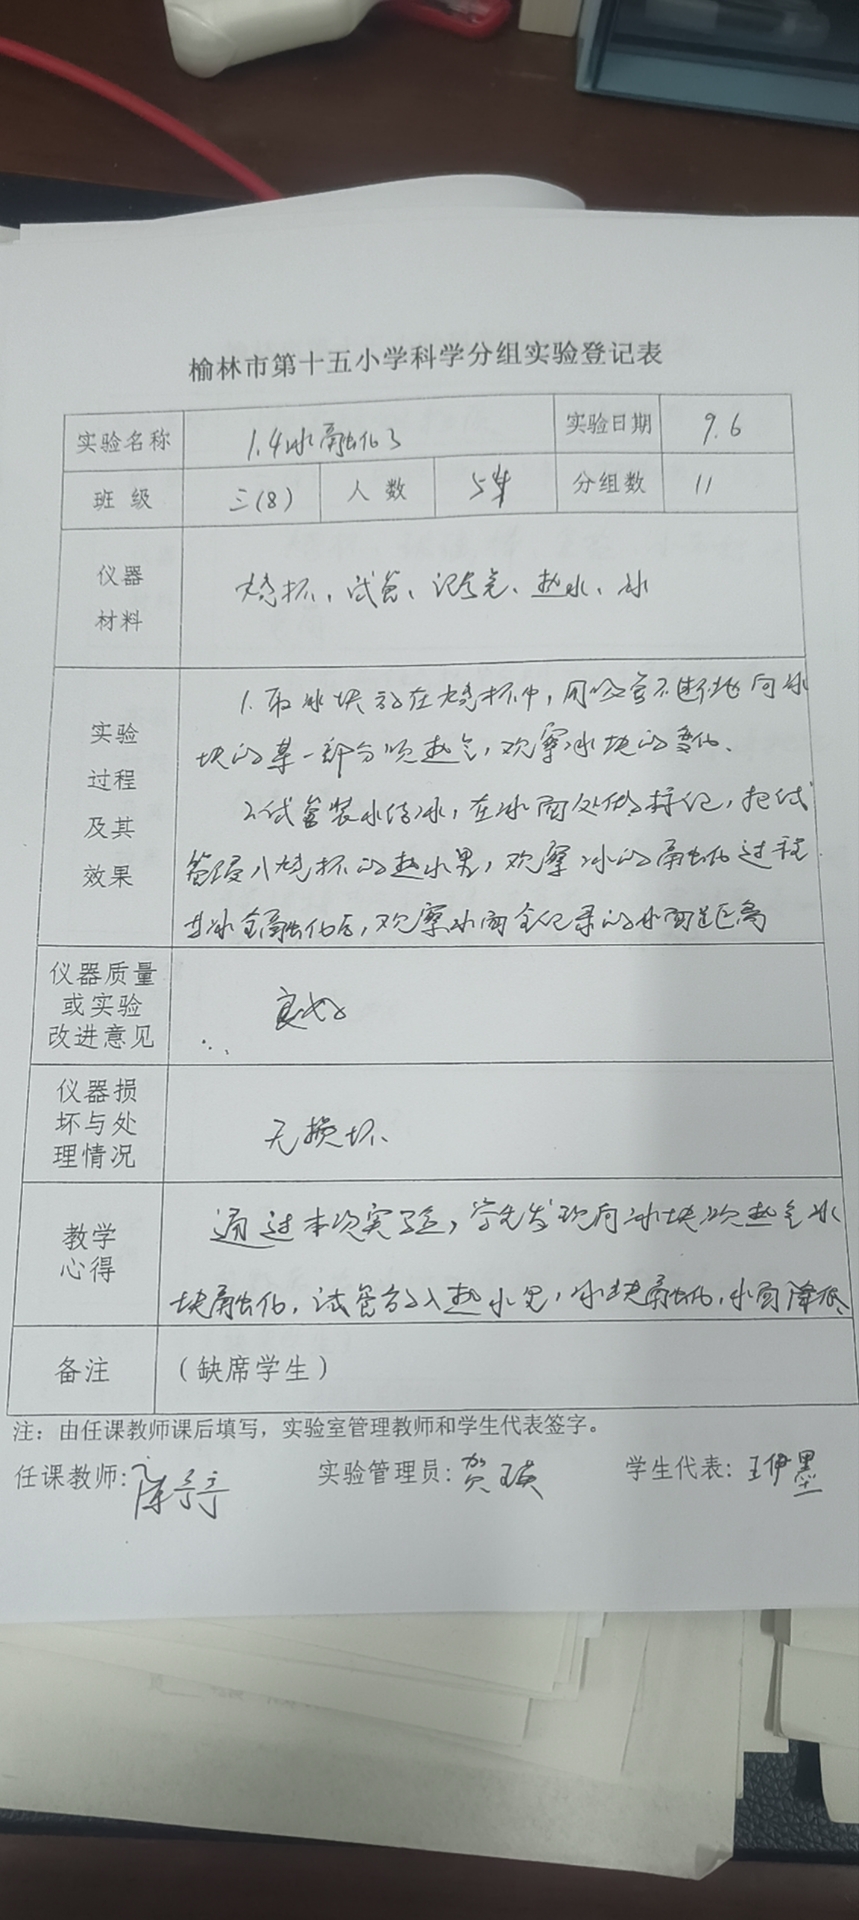 榆林市第十五小学科学分组实验登记表
实验名称 1.4冰融化了 实验日期 9.6
班 级 三(8) 人 数 分组数 11
仪器
材料
烧杯、试管、记号笔、热水、冰
实验
过程
及其
效果
1.取冰块放在烧杯中,用吸管不断地向冰
块的某一部分吹热气,观察冰块的变化、
2.试管装水结冰,在冰面处做标记,把试
管浸入烧杯的热水里,观察冰的融化过程
冰全融化后,观察水面记录的水面距离
仪器质量
或实验
改进意见
良好
仪器损
坏与处
理情况
无损坏、
教学
心得
通过本次实验,学生发现向冰块吹热气冰
块融化,试管放入热水里,冰块融化,水面降低
备注 (缺席学生)
注:由任课教师课后填写,实验室管理教师和学生代表签字。
任课教师: 实验管理员:贺瑛 学生代表:王伊墨